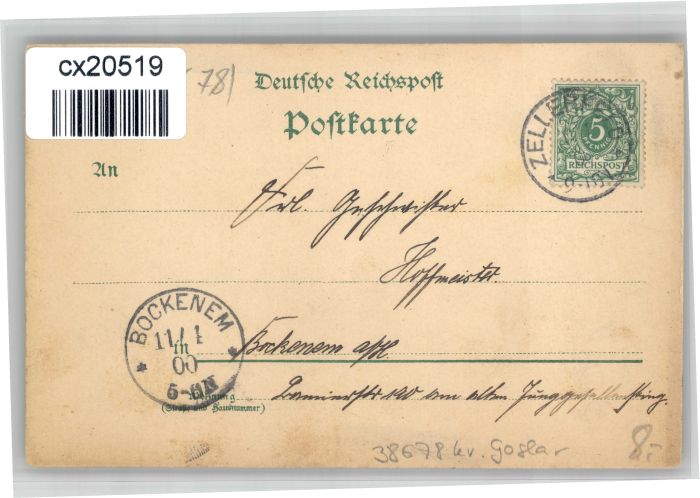 cx20519
78)
Deutsche Reichspost
Postkarte
ZELLERFELD
5
PFENNIG
REICHSPOST
An
Frl. Geschwister
Hoffmeister.
BOCKENEM
11/1
00
5-6N
in
Bockenem a/H.
Wohnung
(Straße und Hausnummer)
am alten
38678 kr. Goslar
8,-